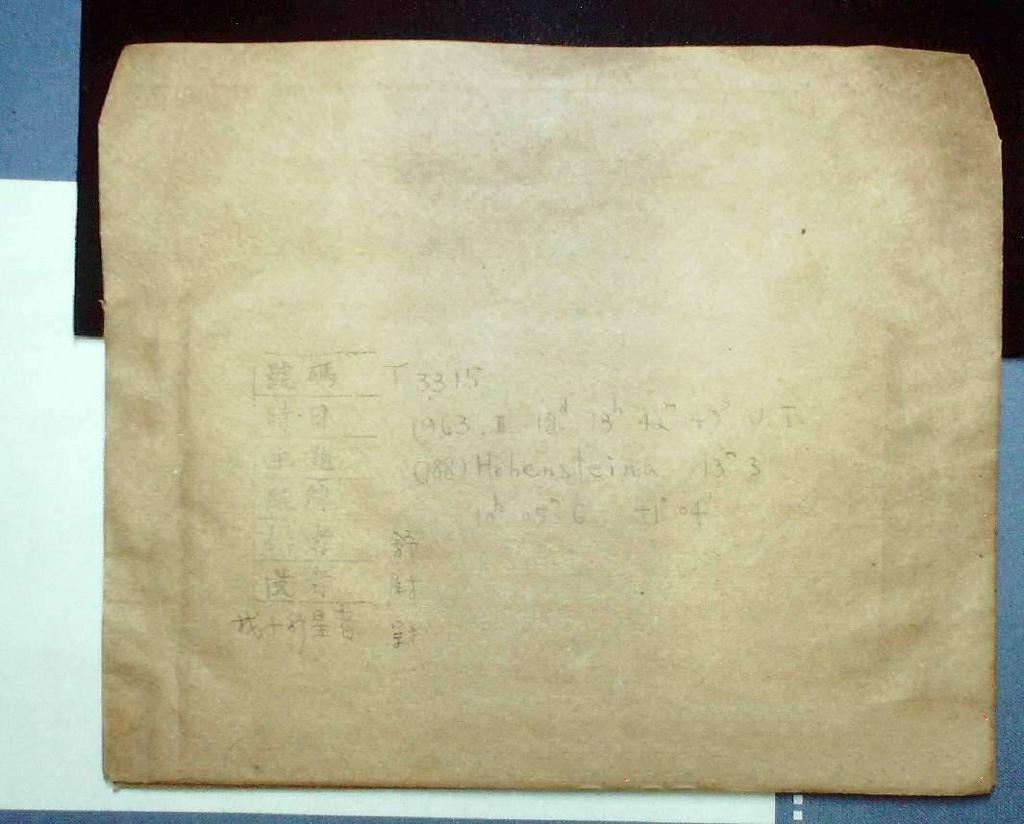 號碼 T 3315
時日 1963. II 18ᵈ 13ʰ 42ᵐ 43ˢ U.T.
主題 (788) Hohensteina 13ᵐ3
經緯 10ʰ 05ᵐ6 +1° 04'
者 舒
者
找小行星者